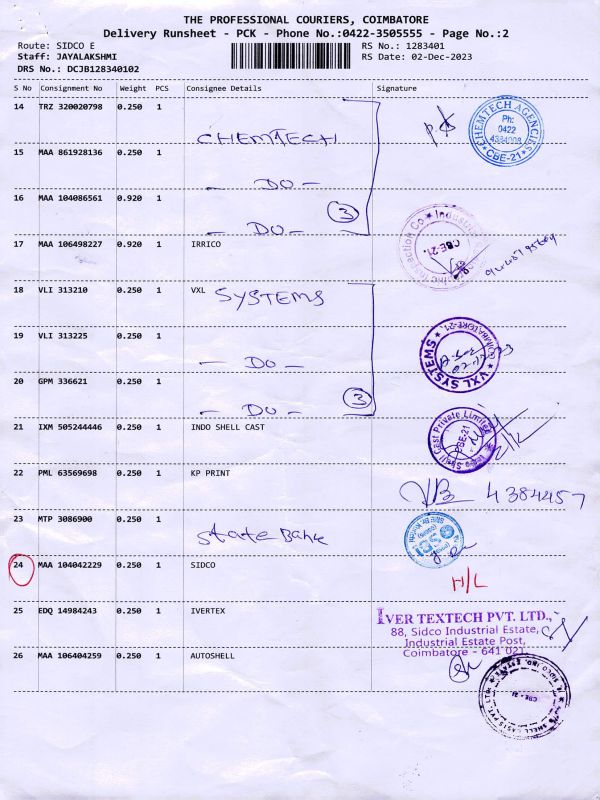 THE PROFESSIONAL COURIERS, COIMBATORE
Delivery Runsheet - PCK - Phone No.:0422-3505555 - Page No.:2
Route: SIDCO E RS No.: 1283401
Staff: JAYALAKSHMI RS Date: 02-Dec-2023
DRS No.: DCJB128340102
S No Consignment No Weight PCS Consignee Details Signature
14 TRZ 320020798 0.250 1 CHEMTECH
CHEMTECH AGENCIES
Ph:
0422
CBE-21
15 MAA 861928136 0.250 1 — DO —
16 MAA 104086561 0.920 1 — DO — 3
17 MAA 106498227 0.920 1 IRRICO
Inspection Co
CBE-21.
18 VLI 313210 0.250 1 VXL SYSTEMS
19 VLI 313225 0.250 1 — DO —
VXL SYSTEMS
COIMBATORE-21.
20 GPM 336621 0.250 1 — DO — 3
21 IXM 505244446 0.250 1 INDO SHELL CAST
Shell Cast Private Limited
CBE-21
22 PML 63569698 0.250 1 KP PRINT
4384457
23 MTP 3086900 0.250 1 State Bank
24 MAA 104042229 0.250 1 SIDCO H/L
25 EDQ 14984243 0.250 1 IVERTEX
IVER TEXTECH PVT. LTD.,
88, Sidco Industrial Estate,
Industrial Estate Post,
Coimbatore - 641 021.
26 MAA 106404259 0.250 1 AUTOSHELL
SHELL CASTS PVT. LTD.
SIDCO IND. ESTATE
CBE - 21